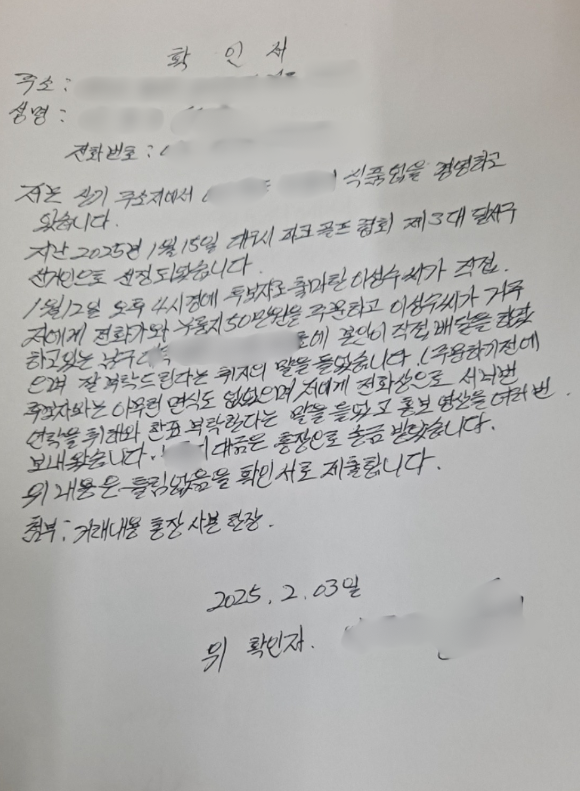 확 인 서
주소 :
성명 :
전화번호 :
저는 상기 주소지에서 식품업을 경영하고
있습니다.
지난 2025년 1월 15일 대구시 파크골프 협회 제3대 달서구
선거인으로 선정되었습니다.
1월 12일 오후 4시경에 후보자로 출마한 이성수씨가 직접
저에게 전화가와 50만원을 주문하고 이성수씨가 거주
하고있는 남구 에 본인이 직접 배달을 갔
으며 잘 부탁드린다는 취지의 말을 들었습니다. (주문하기전에
후보자와는 아무런 면식도 없었으며 저에게 전화상으로 서너번
연락을 취해와 한표 부탁한다는 말을 들었고 홍보 영상을 여러번
보내왔습니다. 대금은 통장으로 송금 받았습니다.
위 내용은 틀림없음을 확인서로 제출합니다.
첨부 : 거래내용 통장 사본 한장.
2025. 2. 03일
위 확인자.